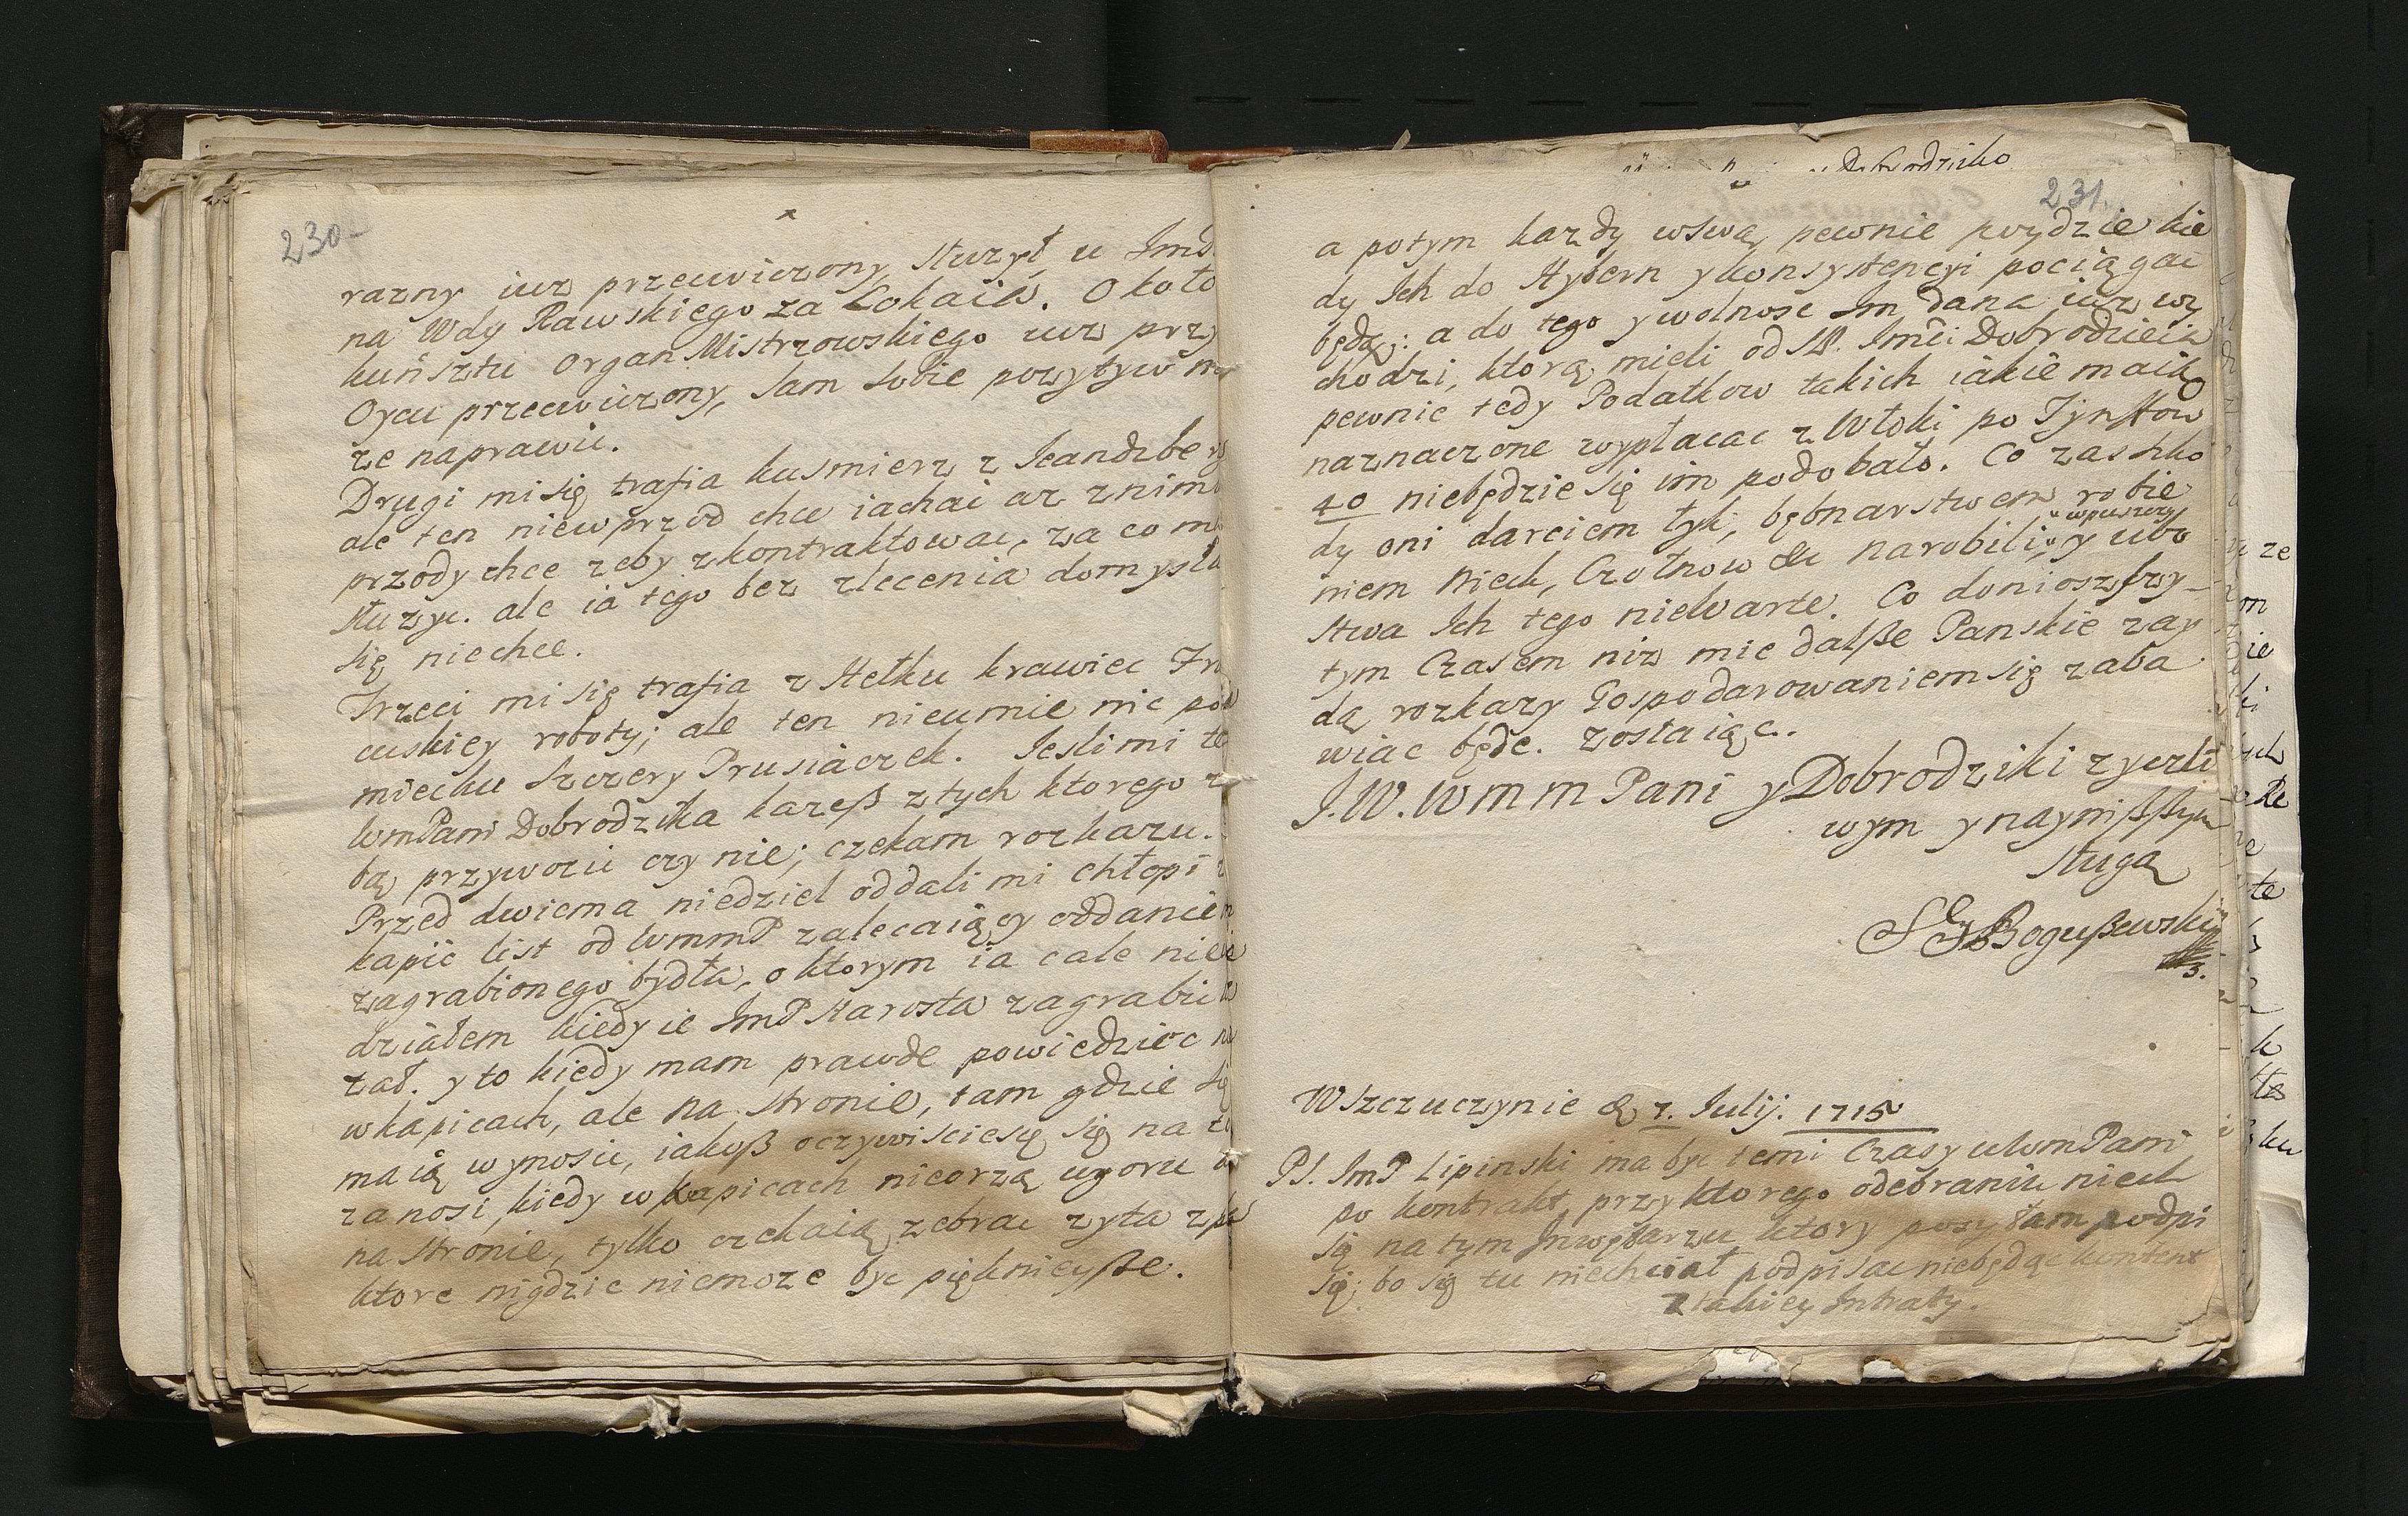 230
razny iuz przecwiczony, słuzył u Imć
na Wdy Rawskiego za Lokaia. Około
kuńsztu Organ Mistrzowskiego iuz przy
Oycu przecwiczony, sam sobie pozytyw
ze naprawić.
Drugi mi się trafia kusmierz z
ale ten niewprzod chce iachać az znim
przody chce zeby zkontraktować, za co ma
słuzyc. ale ia tego bez zlecenia domysla
się niechce.
Trzeci mi się trafia z Ełku krawiec Fran
cuskiey roboty; ale ten nieumie nic po
miecku szczery Prusiaczek. Iesli mi te
WmPani Dobrodzika każeß z tych ktorego z
bą przywozić czy nie; czekam rozkazu.
Przed dwiema niedziel oddali mi chłopi z
kapic list od WmmP zalecaiący oddanie
zagrabionego bydła, o ktorym ia cale niewie
działem kiedy ie ImP Starosta zagrabić
zał. y to kiedy mam prawde powiedziec
w kapicach, ale na stronie, tam gdzie się
maią wynosić, iakoß oczywisciesię się na to
zanosi, kiedy w kapicach nieorzą ugoru
na stronie, tylko czekaią zebrac zyta z
ktore nigdzie niemoze byc pięknieyße.
Dobrodziko
231
a potym kazdy wswą pewnie poydzie kie
dy Ich do Hybern y konsystencyi pociągac
będą; a do tego y wolnosc Im dana iuz wy
chodzi, ktorą mieli od SP. Imći Dobrodzieia
pewnie tedy Podatkow takich iakie maią
naznaczone wypłacac z Włoki po Tynffow
40 niebędzie się im podobało. Co zas szko
dy oni darciem łyk, bębnarstwem robie
w puszczy
niem Niech, Czołnow &c narobili, y ubo
stwa Ich tego niewarte. Co doniozszy
tym Czasem niz mie dalße Panskie zay
dą rozkazy Gospodarowaniem się zaba
wiac będe. zostaiąc..
J.W.WmmPani y Dobrodziki zyczli
wym y naynißßym
sługą
Bogußewski
W Szczuczynie d 7. Iulij. 1715
PS. ImP Lipinski ma byc temi Czasy u WmPani
po kontrakt, przy ktorego odebraniu niech
się na tym Inwętarzu ktory posyłam podpi
się; bo się tu niechciał podpisac niebędąc kontent
z takiey Intraty.